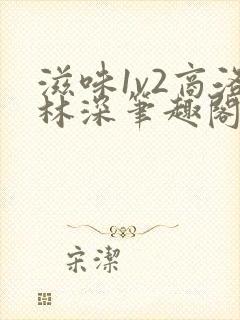 滋味1v2高洛
林深笔趣阁
宋潔